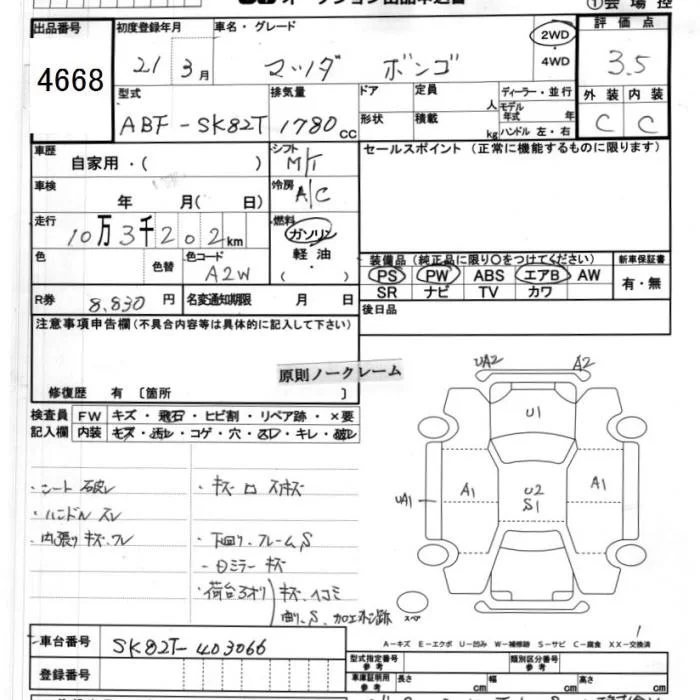 オークション出品申込書
①会場控
出品番号 初度登録年月 車名・グレード 評価点
4668 21 3月 マツダ ボンゴ 2WD ・ 4WD 3.5
型式 排気量 ドア 定員 人 ディーラー・並行 外装 内装
ABF-SK82T 1780cc 形状 積載 kg モデル年式 年 ハンドル 左・右 C C
車歴 自家用・( ) シフト M/T セールスポイント(正常に機能するものに限ります)
車検 年 月( 日) 冷房 A/C
走行 10万3千202km 燃料 ガソリン
軽油 ・ ( )
色 色替 色コード A2W 装備品(純正品に限り○をつけてください) 新車保証書
PS PW ABS エアB AW 有・無
SR ナビ TV カワ
R券 8,830円 名変通知期限 月 日 後日品
注意事項申告欄(不具合内容等は具体的に記入して下さい)
原則ノークレーム
修復歴 有 〔箇所 〕
検査員 FW キズ・飛石・ヒビ割・リペア跡・×要
記入欄 内装 キズ・汚レ・コゲ・穴・スレ・キレ・破レ
UA2 A2
U1
・シート破レ
・キズロスキズ
A1 U2 A1
UA1 S1
・ハンドルスレ
・内張りキズ、ワレ ・下回り、フレームS
・日ミラーキズ
・荷台3オリ キズ、ヘコミ
曲リ、S、加工ネジ跡
スペア
A-キズ E-エクボ U-凹み W-補修跡 S-サビ C-腐食 XX-交換済
車台番号 SK82T-403066 型式指定番号 参考 類別区分番号 参考
登録番号 車庫証明用 参考 長さ cm 幅 cm 高さ cm